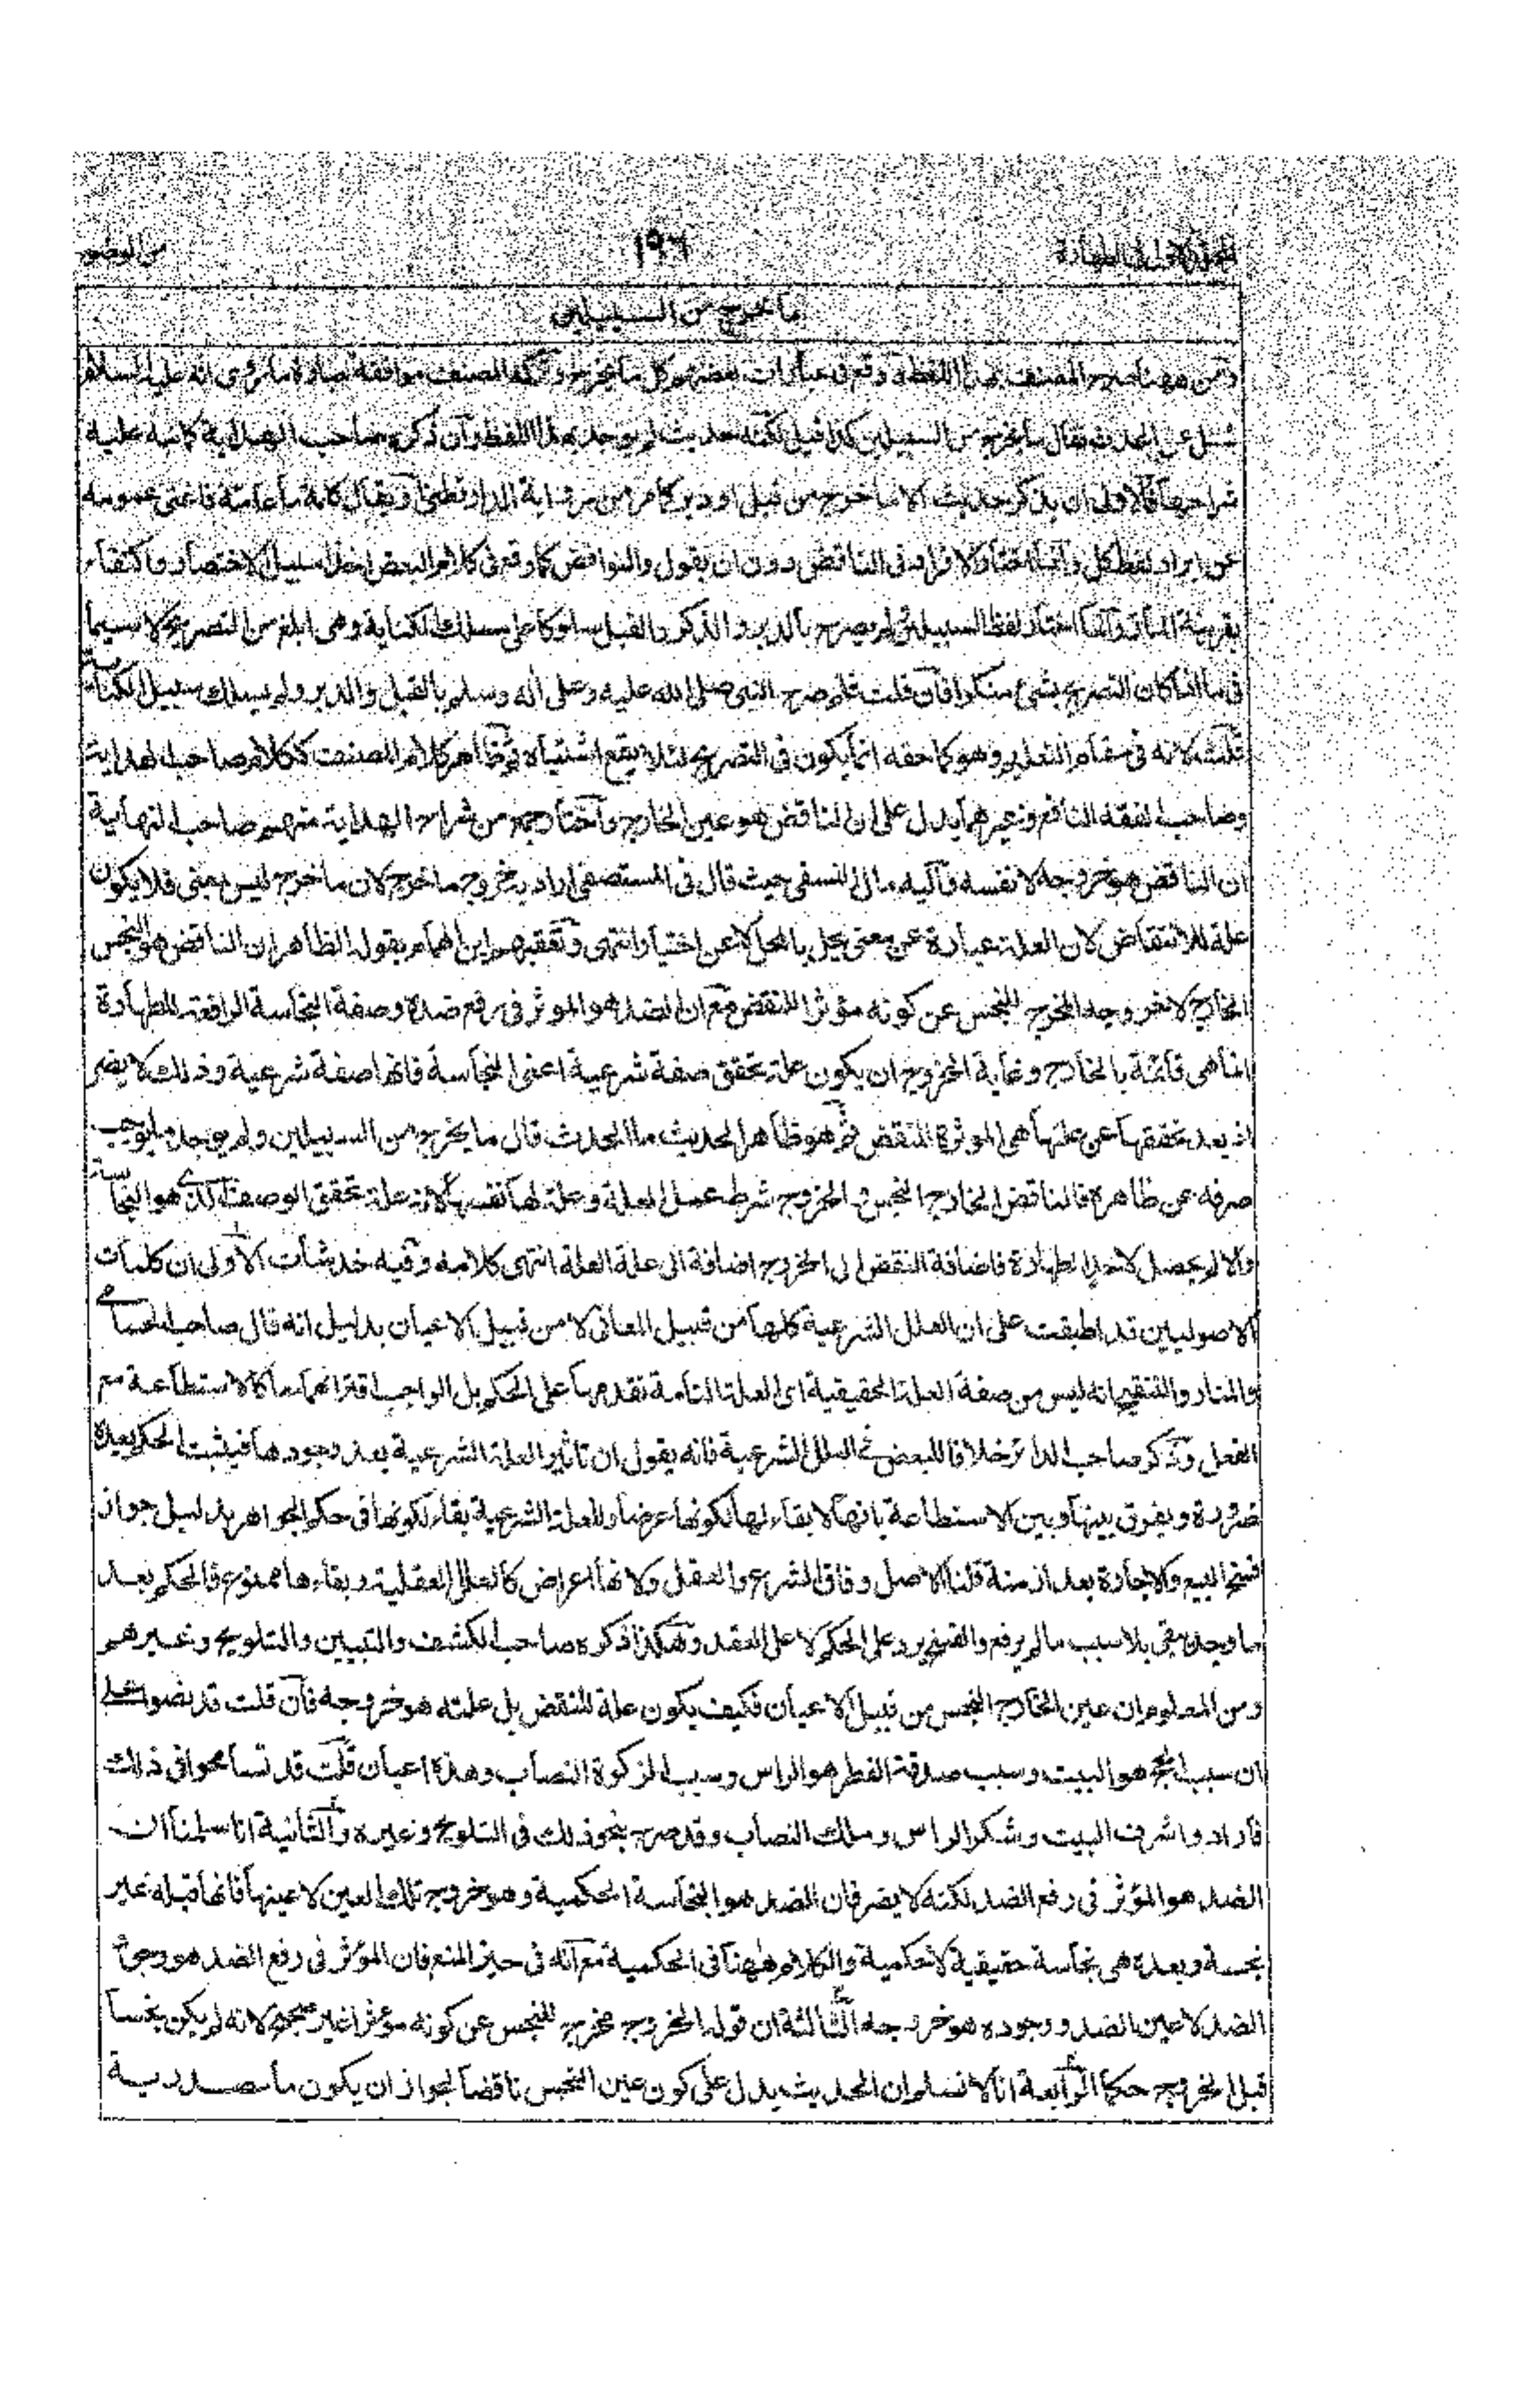 المجلد الاول في الطهارة
١٩٦
من الوضوء
ما خرج من السبيلين
ومن ههنا صرح المصنف بهذا اللفظ ووقع في عبارات بعضهم كل ما يخرج وتركه المصنف موافقة لعبارة ما روى انه عليه السلام
سئل عن الحدث فقال ما يخرج من السبيلين كذا قيل لكنه حديث لم يوجد بهذا اللفظ وان ذكره صاحب الهداية كما نبه عليه
شراحها فالاولى ان يذكر حديث الا ما خرج من قبل او دبر كما مر من رواية الدارقطني ويقال كلمة ما عامة فاغنى عمومه
عن ايراد لفظ كل وانما اختار الافراد في الناقض دون ان يقول والنواقض كما وقع في كلام البعض اخذا سبيل الاختصار واكتفاء
بقرينة المأز وانما اختار لفظ السبيلين ولم يصرح بالدبر والذكر والقبل سلوكا على مسلك الكناية وهي ابلغ من التصريح لا سيما
في ما اذا كان التصريح بشئ منكرا فان قلت فلم صرح النبي صلى الله عليه وعلى اله وسلم بالقبل والدبر ولم يسلك سبيل الكناية
قلت لانه في مقام التعليم وهو كما حقه انما يكون في التصريح لئلا يقع اشتباه ثم ظاهر كلام المصنف ككلام صاحب الهداية
وصاحب الفقه النافع وغيرهما يدل على ان الناقض هو عين الخارج واختار جمع من شراح الهداية منهم صاحب النهاية
ان الناقض هو خروجه لا نفسه واليه مال النسفي حيث قال في المستصفى اراد به خروج ما خرج لان ما خرج ليس بمعنى فلا يكون
علة للانتقاض لان العلة عبارة عن معنى يحل بالمحل لا عن اختيار انتهى وتعقبهم ابن الهمام بقوله الظاهر ان الناقض هو النجس
الخارج لا خروجه المخرج للنجس عن كونه مؤثرا للنقض مع ان الضد هو الموثر في رفع ضده وصفة النجاسة الرافعة للطهارة
انما هي قائمة بالخارج وغاية الخروج ان يكون علة تحقق صفة شرعية اعني النجاسة فانها صفة شرعية وذلك لا يضر
اذ بعد تحققها عن علتها هي الموثرة للنقض ثم هو ظاهر الحديث ما الحدث قال ما يخرج من السبيلين ولم يوجد ما يوجب
صرفه عن ظاهره فالناقض الخارج النجس والخروج شرط عمل العلة وعلة لها نفسها لانه علة تحقق الوصف الذي هو النجاسة
والا لم يحصل لاحد الطهارة فاضافة النقض الى الخروج اضافة الى علة العلة انتهى كلامه وفيه خدشات الاولى ان كلمات
الاصوليين قد اطبقت على ان العلل الشرعية كلها من قبيل المعاني لا من قبيل الاعيان بدليل انه قال صاحب الحسامي
والمنار والتنقيح انه ليس من صفة العلة الحقيقية اي العلة التامة تقدمها على الحكم بل الواجب اقترانهما معا كالاستطاعة مع
الفعل وذكر صاحب الدائر خلافا للبعض في العلل الشرعية فانه يقول ان تاثير العلة الشرعية بعد وجودها فيثبت الحكم بعده
ضرورة ويفرق بينها وبين الاستطاعة بانها لا بقاء لها لكونها عرضا وللعلة الشرعية بقاء لكونها في حكم الجواهر بدليل جواز
فسخ البيع والاجارة بعد ازمنة قلنا الاصل وفاق الشرع والعقل ولانها اعراض كالعلل العقلية وبقاءها ممنوع فالحكم بعد
ما وجد بقي بلا سبب ما لم يرفع والفسخ يرد على الحكم لا على العقد وهكذا ذكره صاحب الكشف والتبيين والتلويح وغيرهم
ومن المعلوم ان عين الخارج النجس من قبيل الاعيان فكيف يكون علة للنقض بل علته هو خروجه فان قلت قد نصوا على
ان سبب الحج هو البيت وسبب صدقة الفطر هو الراس وسبب الزكوة النصاب وهذه اعيان قلت قد تسامحوا في ذلك
فارادوا شرف البيت وشكر الراس وملك النصاب وقد صرح بنحو ذلك في التلويح وغيره والثانية انا سلمنا ان
الضد هو المؤثر في رفع الضد لكنه لا يضر فان الضد هو النجاسة الحكمية وهو خروج تلك العين لا عينها فانها قبله غير
نجسة وبعده هي نجاسة حقيقية لا حكمية والكلام ههنا في الحكمية مع انه في حيز المنع فان المؤثر في رفع الضد هو وجود
الضد لا عين الضد ووجوده هو خروجه الثالثة ان قوله الخروج مخرج للنجس عن كونه مؤثرا غير صحيح لانه لم يكن نجسا
قبل الخروج حكما الرابعة انا لا نسلم ان الحديث يدل على كون عين النجس ناقضا لجواز ان يكون ما مصدرية